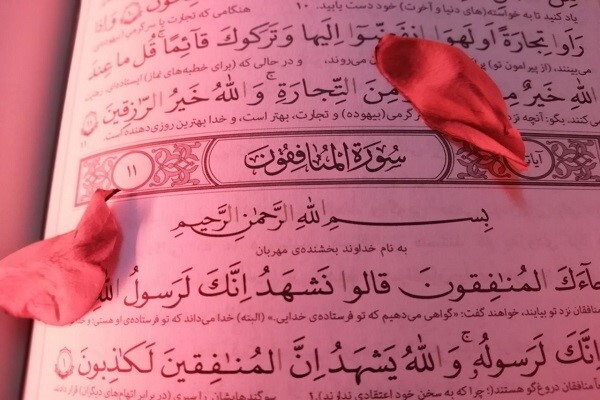 یاد کنید تا به خواسته‌(های دنیا و آخرت) خود دست یابید. ۱۰ هنگامی که تجارت یا سرگرمی
رَأَوْا تِجَارَةً أَوْ لَهْوًا انْفَضُّوا إِلَيْهَا وَتَرَكُوكَ قَائِمًا ۚ قُلْ مَا عِنْدَ
می‌بینند، (از پیرامون تو) می‌روند، و در حالی که (برای خطبه‌های نماز) ایستاده‌ای،
اللَّهِ خَيْرٌ مِنَ التِّجَارَةِ ۚ وَاللَّهُ خَيْرُ الرَّازِقِينَ
می‌کنند. بگو: آنچه نزد (بیهوده) و تجارت، بهتر است، و خدا بهترین روزی‌دهنده است
۱۱ سُورَةُ الْمُنَافِقُونَ
بِسْمِ اللَّهِ الرَّحْمَنِ الرَّحِيمِ
به نام خداوند بخشنده‌ی مهربان
جَاءَكَ الْمُنَافِقُونَ قَالُوا نَشْهَدُ إِنَّكَ لَرَسُولُ اللَّهِ
منافقان نزد تو بیایند، خواهند گفت: «گواهی می‌دهیم که تو فرستاده‌ی خدایی.» (البته) خدا می‌داند که تو فرستاده‌ی او هستی؛
إِنَّكَ لَرَسُولُهُ وَاللَّهُ يَشْهَدُ إِنَّ الْمُنَافِقِينَ لَكَاذِبُونَ ۱
منافقان دروغ‌گو هستند؛ (چرا که به سخن خود اعتقادی ندارند). ۱ سوگندهایشان را سپری (در برابر اتهام‌های دیگران) قرار